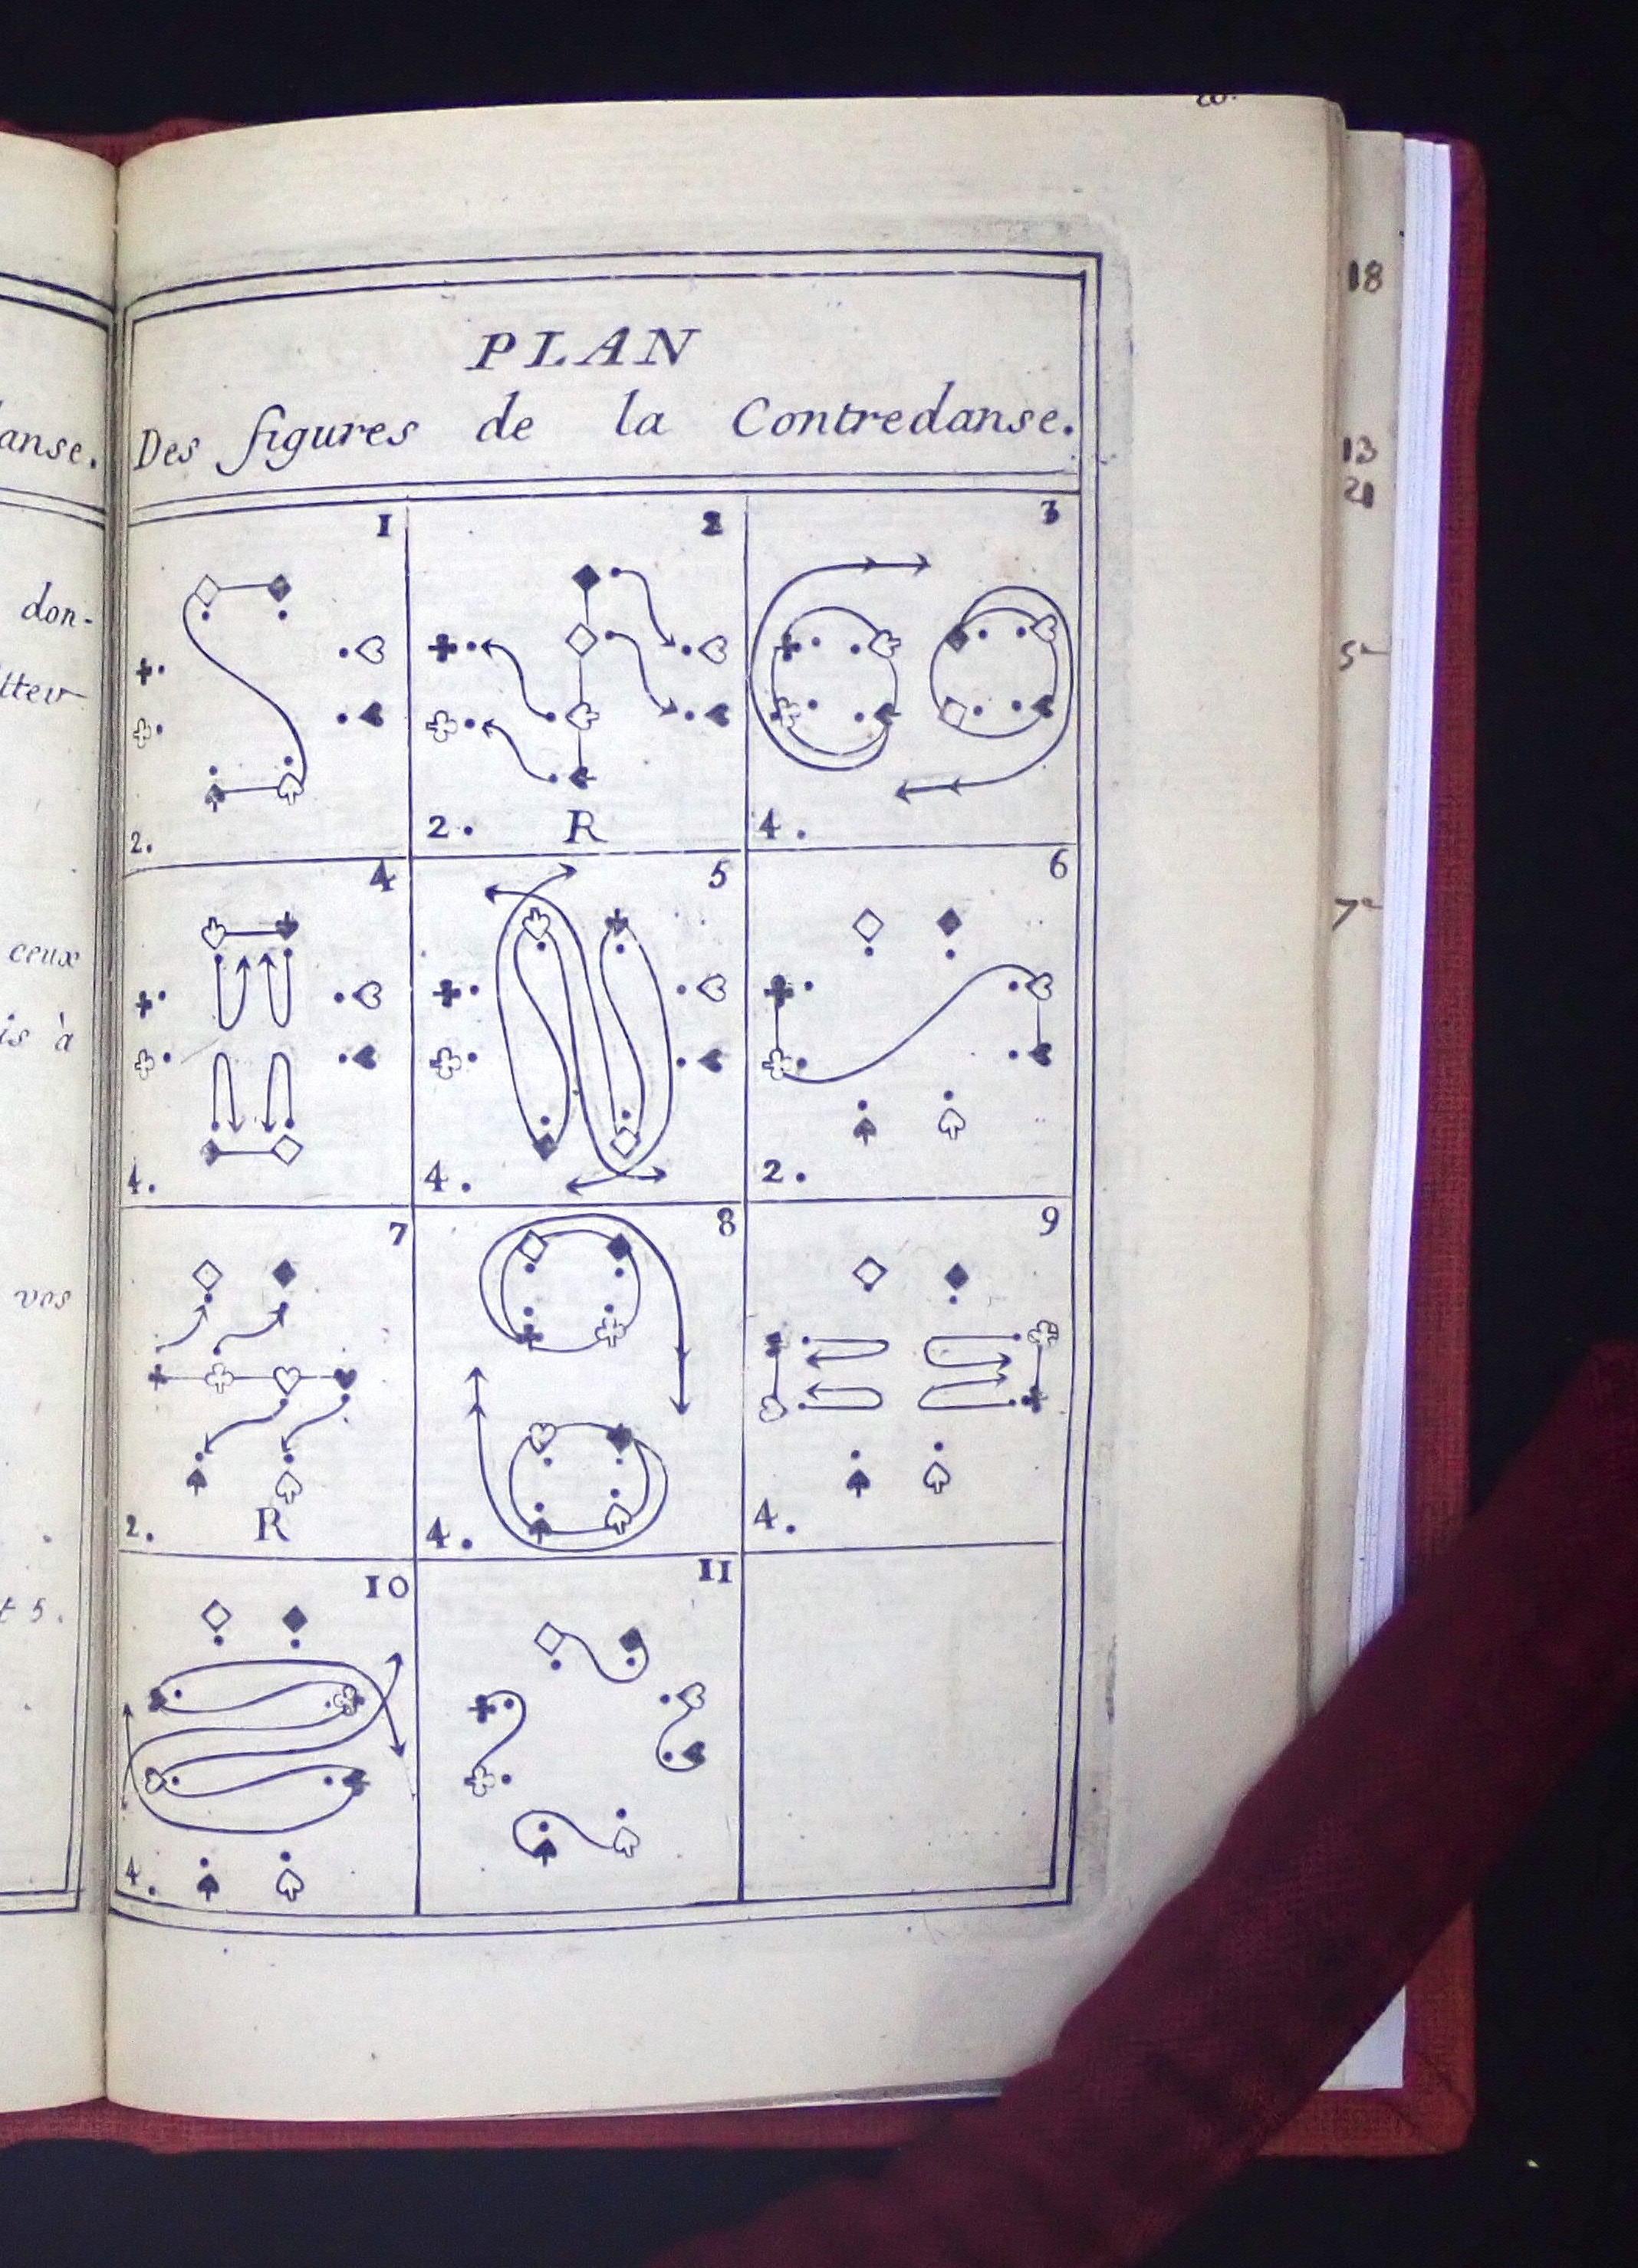 PLAN
Des figures de la Contredanse.
anse.
don-
ceux
is à
vos
t 5.
1
2.
2
2. R
3
4.
4
4.
5
4.
6
2.
7
2. R
8
4.
9
4.
10
4.
11
18
13
21